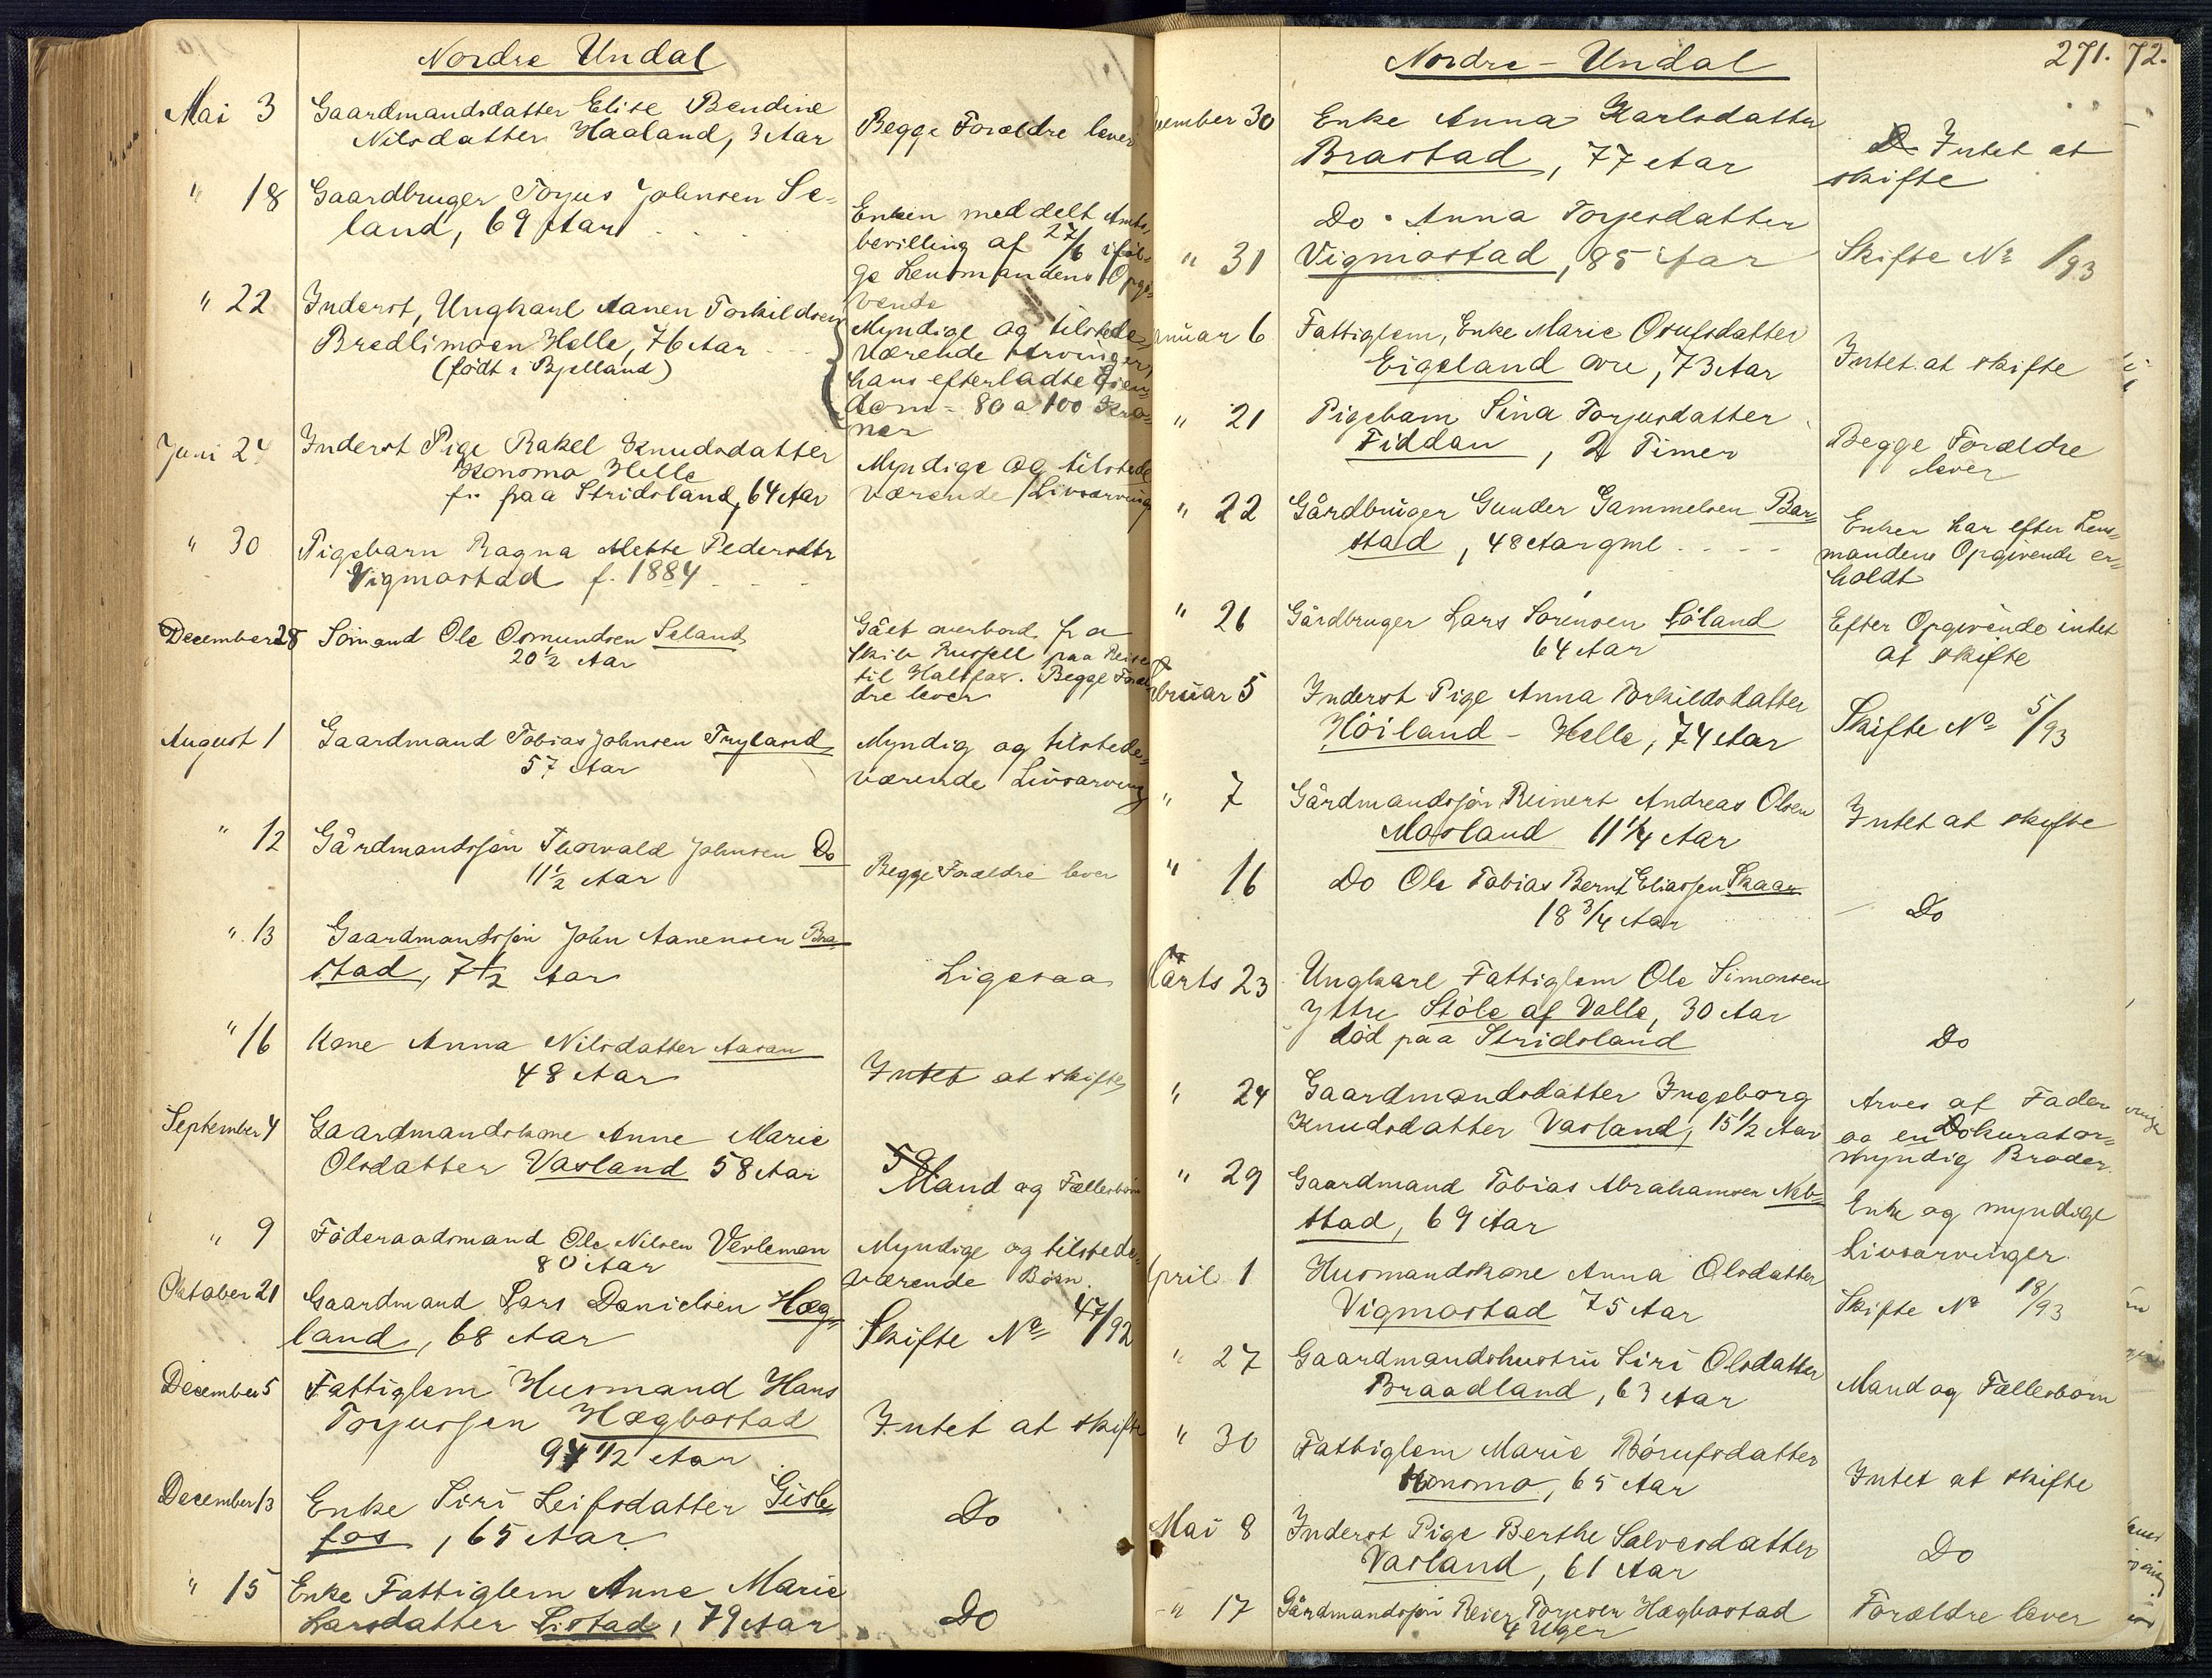 Nordre Undal
Mai 3 Gaardmandsdatter Elise Bendine
Nilsdatter Haaland, 3 Aar
Begge Forældre lever
" 18 Gaardbruger Torjus Johnsen Se-
land, 69 Aar
Enken meddelt Amts-
bevilling af 27/6 iföl-
ge Lensmandens Opgi-
vende
" 22 Inderst, Ungkarl Aanen Torkildsen
Bredlimoen Helle, 76 Aar
(födt i Bjelland)
Myndige og tilstede-
værende Arvinger,
hans efterladte Eien-
dom = 80 a 100 Kro-
ner
Juni 24 Inderst Pige Rakel Knudsdatter
Konsmo Helle
f. paa Stridsland, 64 Aar
Myndige og tilstede
værende Livsarvinge
" 30 Pigebarn Ragna Mette Pedersdtr
Vigmostad f. 1884
December 28 Sömand Ole Osmundsen Seland
20 1/2 Aar
Gået overbord fra
Skib Russell paa Reise
til Halifax. Begge Foræl-
dre lever
August 1 Gaardmand Tobias Johnsen Tryland
57 Aar
Myndig og tilstede-
værende Livsarving
" 12 Gårdmandssön Thorvald Johnsen Do
11 1/2 Aar
Begge Forældre lever
" 13 Gaardmandssön John Aanensen Bra-
stad, 7 1/2 Aar
Ligesaa
" 16 Kone Anna Nilsdatter Aasan
48 Aar
Intet at skifte
September 4 Gaardmandskone Anne Marie
Olsdatter Vasland 58 Aar
Mand og Fællesbörn
" 9 Föderaadsmand Ole Nilsen Verlemon
80 Aar
Myndige og tilstede-
værende Börn.
Oktober 21 Gaardmand Lars Danielsen Høg-
land, 68 Aar
Skifte No 47/92
December 5 Fattiglem Husmand Hans
Torjussen Hægbostad
94 1/2 Aar
Intet at skifte
December 13 Enke Siri Leifsdatter Gisle
fos, 65 Aar
Do
" 15 Enke Fattiglem Anne Marie
Larsdatter Listad, 79 Aar
Do
Nordre - Undal
271. 72.
ember 30 Enke Anna Karlsdatter
Brastad, 77 Aar
Intet at
skifte
" 31 Do. Anna Torjesdatter
Vigmostad, 85 Aar
Skifte No 1/93
anuar 6 Fattiglem, Enke Marie Osufsdatter
Eigeland øvre, 73 Aar
Intet at skifte
" 21 Pigebarn Sina Torjusdatter
Fiddan, 2 Timer
Begge Forældre
lever
" 22 Gårdbruger Gunder Gammelsen Bar-
stad, 48 Aar gml
Enken har efter Lens-
mandens Opgivende er-
holdt
" 26 Gårdbruger Lars Sörensen Löland
64 Aar
Efter Opgivende intet
at skifte
Februar 5 Inderst Pige Anna Torkildsdatter
Höiland - Helle, 74 Aar
Skifte No 5/93
" 7 Gårdmandssön Reinert Andreas Olsen
Mosland 11 1/4 Aar
Intet at skifte
" 16 Do Ole Tobias Bernt Eliassen Skaar
18 3/4 Aar
Do
Marts 23 Ungkarl Fattiglem Ole Simonsen
Yttre Stöle af Valle, 30 Aar
död paa Stridsland
Do
" 24 Gaardmandsdatter Ingeborg
Knudsdatter Vasland, 15 1/2 Aar
Arves af Fader
og en kurator-
myndig Broder.
" 29 Gaardmand Tobias Abrahamsen Neb-
stad, 69 Aar
Enke og myndige
Livsarvinger.
April 1 Husmandskone Anna Olsdatter
Vigmostad 75 Aar
Skifte No 18/93
" 27 Gaardmandshustru Siri Olsdatter
Braadland, 63 Aar
Mand og Fællesbörn
" 30 Fattiglem Marie Börufsdatter
Konsmo, 65 Aar
Intet at skifte
Mai 8 Inderst Pige Berthe Salvesdatter
Vasland, 61 Aar
Do
" 17 Gårdmandssön Reier Torjesen Hægbostad
4 Uger
Forældre lever